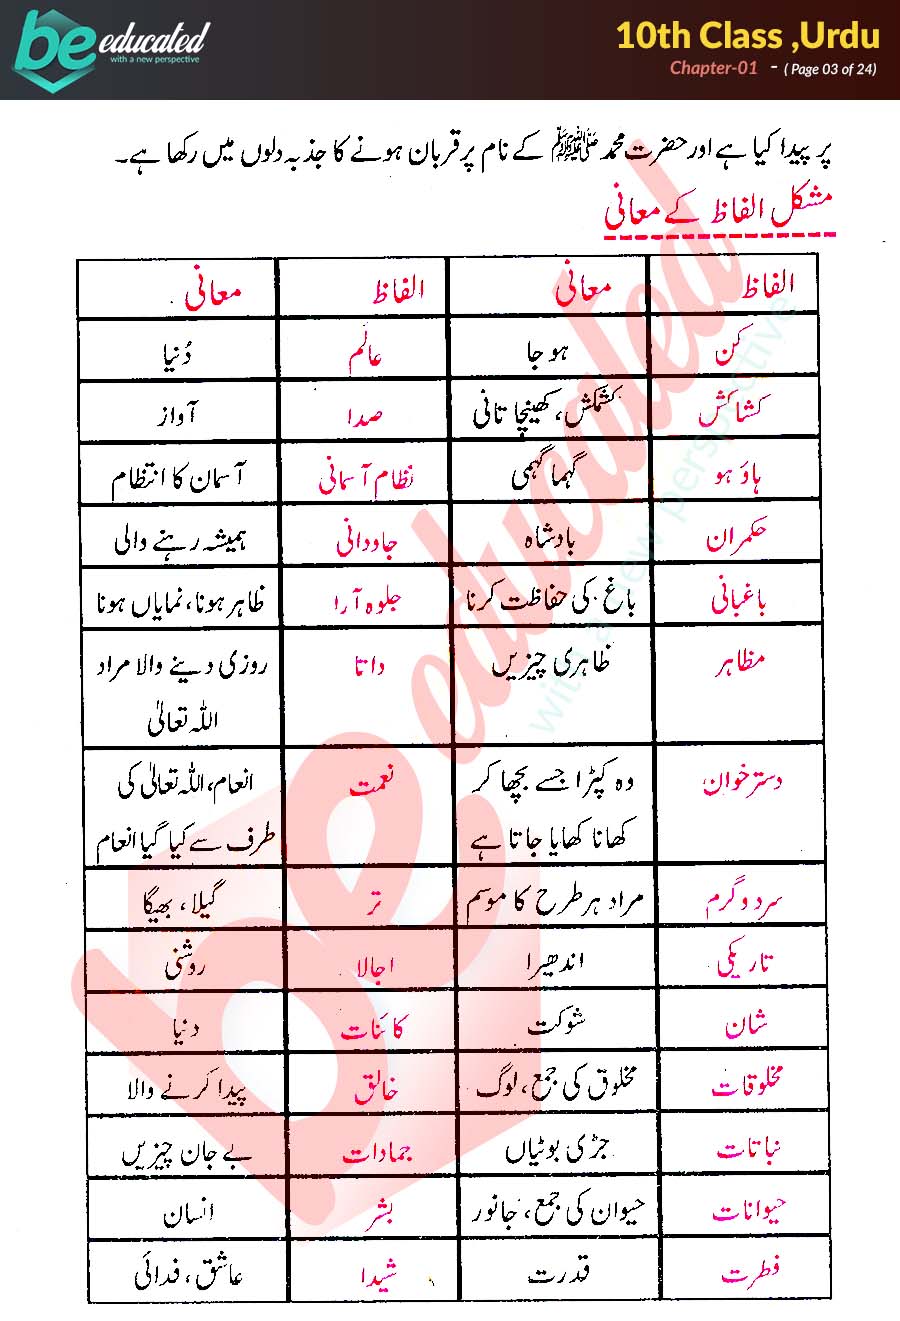 be educated
with a new perspective
10th Class ,Urdu
Chapter-01 - ( Page 03 of 24)
پر پیدا کیا ہے اور حضرت محمد ﷺ کے نام پر قربان ہونے کا جذبہ دلوں میں رکھا ہے۔
مشکل الفاظ کے معانی
الفاظ معانی الفاظ معانی
کن ہو جا عالَم دُنیا
کشاکش کشمکش، کھینچا تانی صدا آواز
ہاؤ ہو گہما گہمی نظام آسمانی آسمان کا انتظام
حکمران بادشاہ جاودانی ہمیشہ رہنے والی
باغبانی باغ کی حفاظت کرنا جلوہ آرا ظاہر ہونا، نمایاں ہونا
مظاہر ظاہری چیزیں داتا روزی دینے والا مراد
اللہ تعالیٰ
دسترخوان وہ کپڑا جسے بچھا کر نعمت انعام، اللہ تعالیٰ کی
کھانا کھایا جاتا ہے طرف سے کیا گیا انعام
سرد و گرم مراد ہر طرح کا موسم تر گیلا، بھیگا
تاریکی اندھیرا اجالا روشنی
شان شوکت کائنات دنیا
مخلوقات مخلوق کی جمع، لوگ خالق پیدا کرنے والا
نباتات جڑی بوٹیاں جمادات بے جان چیزیں
حیوانات حیوان کی جمع، جانور بشر انسان
فطرت قدرت شیدا عاشق، فدائی
be educated
with a new perspective